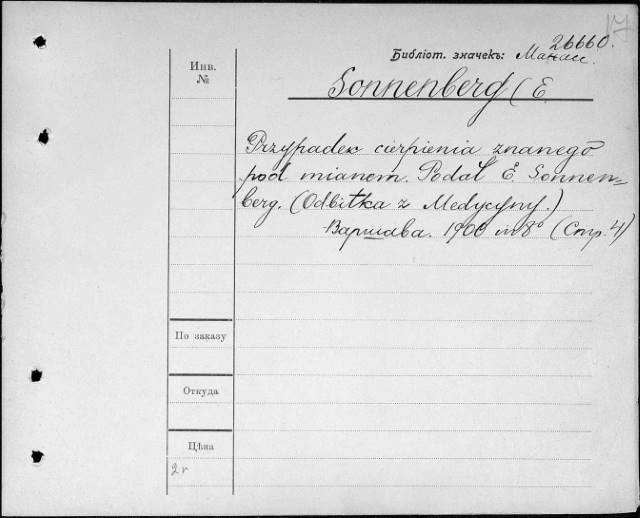 17
26660.
Библіот. значекъ: Манас.
Инв.
№
Sonnenberg (E.
Przypadek cierpienia znanego
pod mianem. Podał E. Sonnen=
berg. (Odbitka z Medycyny.)
Варшава. 1900 in 8° (Стр. 4)
По заказу
Откуда
Цѣна
2 r